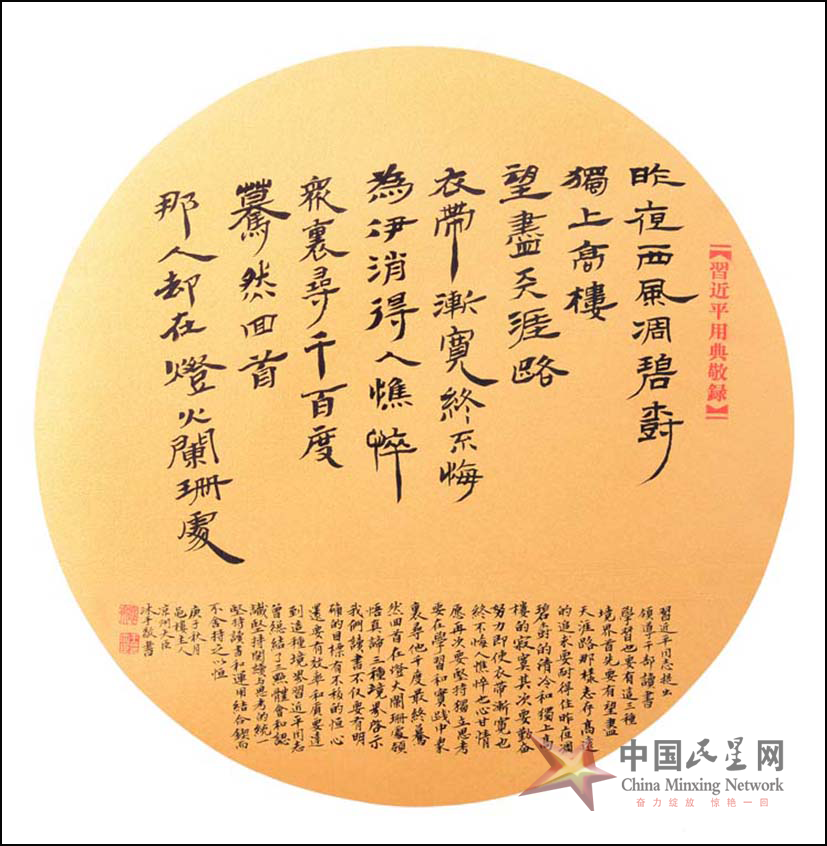 【習近平用典敬録】
昨夜西風凋碧樹
獨上高樓
望盡天涯路
衣帶漸寬終不悔
為伊消得人憔悴
衆裏尋千百度
驀然回首
那人却在燈火闌珊處
習近平同志提出
領導干部讀書
學習也要有這三種
境界首先要有望盡
天涯路那樣志存高遠
的追求要耐得住昨夜西風凋
碧樹的清冷和獨上高
樓的寂寞其次要勤奋
努力即使衣帶漸寬也
終不悔人憔悴也心甘情
應再次要堅持獨立思考
要在學習和實踐中衆
裏尋他千度最終驀
然回首在燈火闌珊處領
悟真諦三種境界啓示
我們讀書不仅要有明
確的目標有不移的恒心
還要有效率和質要達
到這種境界習近平同志
曾總結了三點體會和認
識堅持閱讀与思考的統一
堅持讀書和運用結合鍥而
不舍持之以恒
庚子秋月
邑樓主人
涼州大臣
沐手敬書
中国民星网
China Minxing Network
奋力绽放 惊艳一回